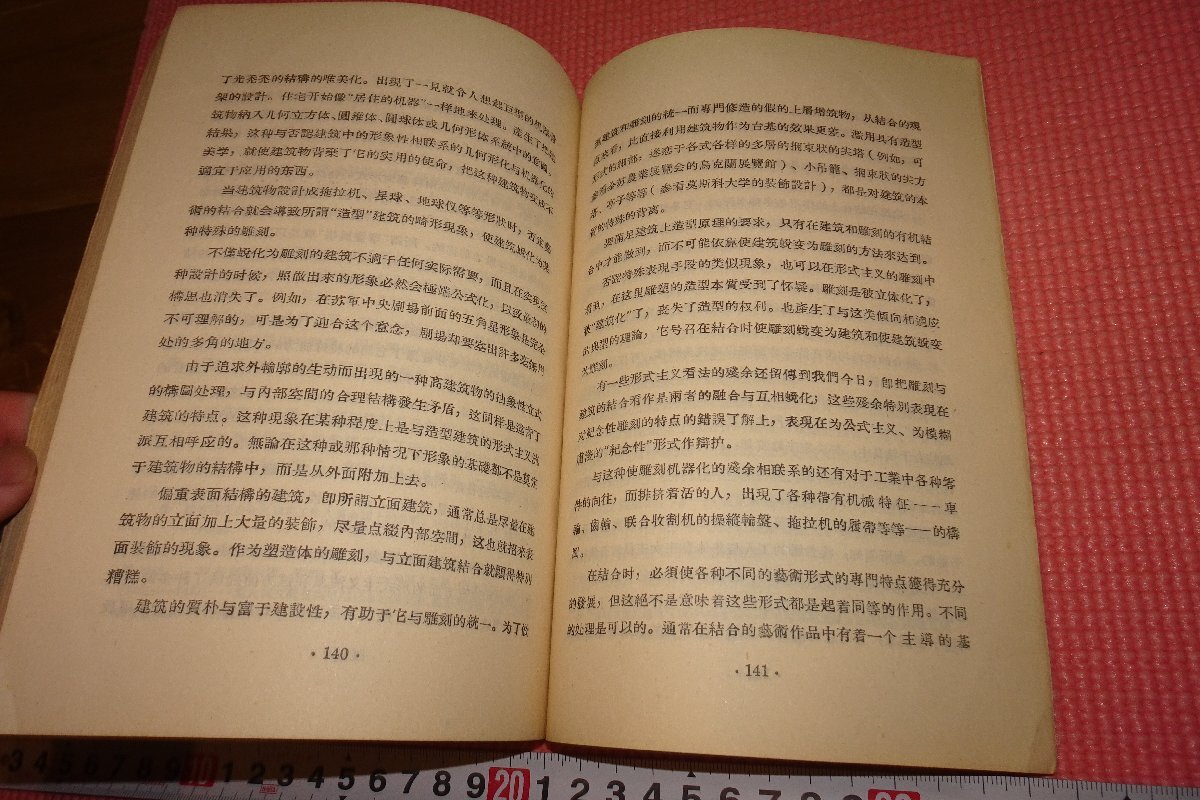 了光秃秃的結構的唯美化。出現了一見就令人想起巨型的机器
架的設計。住宅开始像“居住的机器”一样地来处理。產生了把建
筑物納入几何立方体、圓錐体、圓球体或几何形体系統中的意圖，
結果，这种与否認建筑中的形象性相联系的几何形化与机器化的
美学，就使建筑物背棄了它的实用的使命，把这种建筑物变成不
適宜于应用的东西。
当建筑物設計成拖拉机、星球、地球仪等等形狀时，否定藝
術的結合就会導致所謂“造型”建筑的畸形現象，使建筑蜕化为某
种特殊的雕刻。
不僅蜕化为雕刻的建筑不適于任何实际需要，而且在实現这
种設計的时候，照做出来的形象必然会極端公式化，以致最初的
構思也消失了。例如，在苏軍中央劇場前面的五角星形象是完全
不可理解的，可是为了迎合这个意念，劇場却要突出許多毫無用
处的多角的地方。
由于追求外輪廓的生动而出現的一种高建筑物的动象性立式
的構圖处理，与內部空間的合理結構發生矛盾，这同样是違背了
建筑的特点。这种現象在某种程度上是与造型建筑的形式主义流
派互相呼应的。無論在这种或那种情况下形象的基礎都不是奠定
于建筑物的結構中，而是从外面附加上去。
偏重表面結構的建筑，卽所謂立面建筑，通常总是尽量在建
筑物的立面加上大量的装飾，尽量点綴內部空間，这也就招来表
面装飾的現象。作为塑造体的雕刻，与立面建筑結合就顯得特別
糟糕。
建筑的質朴与富于建設性，有助于它与雕刻的統一。为了
· 140 ·
建筑和雕刻的統一而專門修造的假的上層增筑物，从結合的現
点来看，比直接利用建筑物作为台基的效果更差。濫用具有造型
形式的細部，迷恋于各式各样的多層的捆束狀的尖塔（例如，可
参看全苏農業展覽会的烏克蘭展覽館）、小吊籠、捆束狀的尖方
塔、亭子等等（参看莫斯科大学的装飾設計），都是对建筑的本
質的特殊的背离。
要滿足建筑上造型原理的要求，只有在建筑和雕刻的有机結
合中才能做到，而不可能依靠使建筑蜕变为雕刻的方法來达到。
否認特殊表現手段的类似現象，也可以在形式主义的雕刻中
看到，在这里雕塑的造型本質受到了怀疑。雕刻是被立体化了，
被“建筑化”了，丧失了造型的权利，也產生了与这类傾向相適应
的典型的理論，它号召在結合时使雕刻蜕变为建筑和使建筑蜕变
为雕刻。
有一些形式主义看法的殘余还留傳到我們今日，卽把雕刻与
建筑的結合看作是兩者的融合与互相蜕化；这些殘余特別表現在
对紀念性雕刻的特点的錯誤了解上，表現在为公式主义、为模糊
虛漠的“紀念性”形式作辯护。
与这种使雕刻机器化的殘余相联系的还有对于工業中各种零
件的向往，而排挤着活的人，出現了各种帶有机械特征——車
輪、齒輪、联合收割机的操縱輪盤、拖拉机的履帶等等——的構
圖。
在結合时，必須使各种不同的藝術形式的專門特点獲得充分
的發展，但这絕不是意味着这些形式都是起着同等的作用。不同
的处理是可以的。通常在結合的藝術作品中有着一个主導的基
· 141 ·
3 4 5 6 7 8 9 10 1 2 3 4 5 6 7 8 9 20 1 2 3 4 5 6 7 8 9